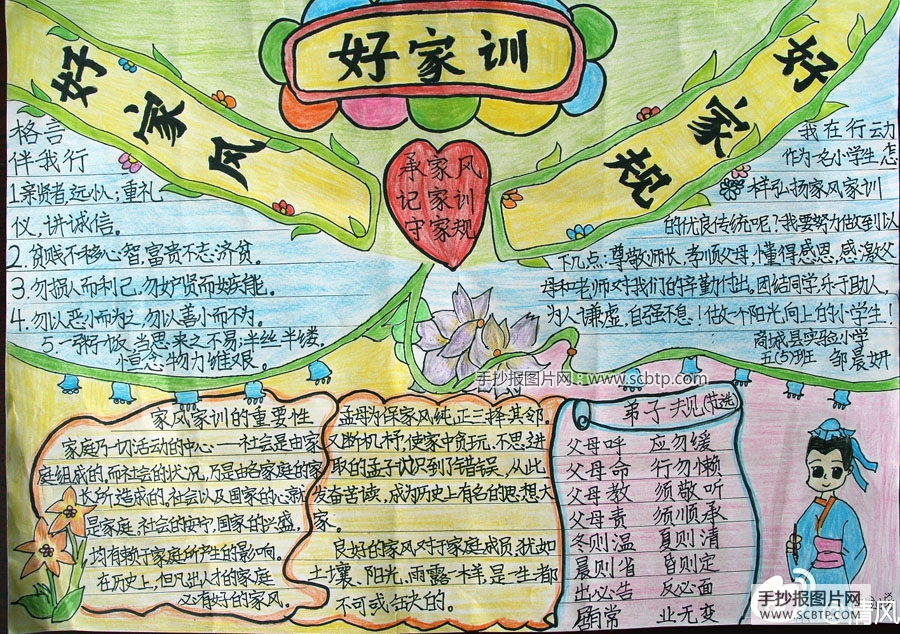 好家训
好家风
好家规
承家风
记家训
守家规
格言
伴我行
1.亲贤者,远小人;重礼
仪,讲诚信。
2.贫贱不移心智,富贵不忘济贫。
3.勿损人而利己,勿妒贤而嫉能。
4.勿以恶小而为之,勿以善小而不为。
5.一粥一饭,当思来之不易;半丝半缕,
恒念物力维艰。
我在行动
作为一名小学生怎
样弘扬家风家训
的优良传统呢?我要努力做到以
下几点:尊敬师长,孝顺父母,懂得感恩,感激父
母和老师对我们的辛勤付出。团结同学,乐于助人,
为人谦虚,自强不息!做一个阳光向上的小学生!
商城县实验小学
五(5)班 邹晨妍
手抄报图片网:www.scbtp.com
家风家训的重要性
家庭乃一切活动的中心——社会是由家
庭组成的,而社会的状况,乃是由各家庭的家
长所造成的。社会以及国家的心就
是家庭,社会的安宁,国家的兴盛,
均有赖于家庭所产生的影响。
在历史上,但凡出人才的家庭
必有好的家风。
孟母为保家风纯正三择其邻,
又断机杼,使家中贪玩、不思进
取的孟子认识到了错误,从此,
发奋苦读,成为历史上有名的思想大
家。
良好的家风对于家庭成员,犹如
土壤、阳光、雨露一样,是一生都
不可或缺的。
弟子规(节选)
父母呼 应勿缓
父母命 行勿懒
父母教 须敬听
父母责 须顺承
冬则温 夏则清
晨则省 昏则定
出必告 反必面
居有常 业无变
手抄报图片网
WWW.SCBTP.COM
清风